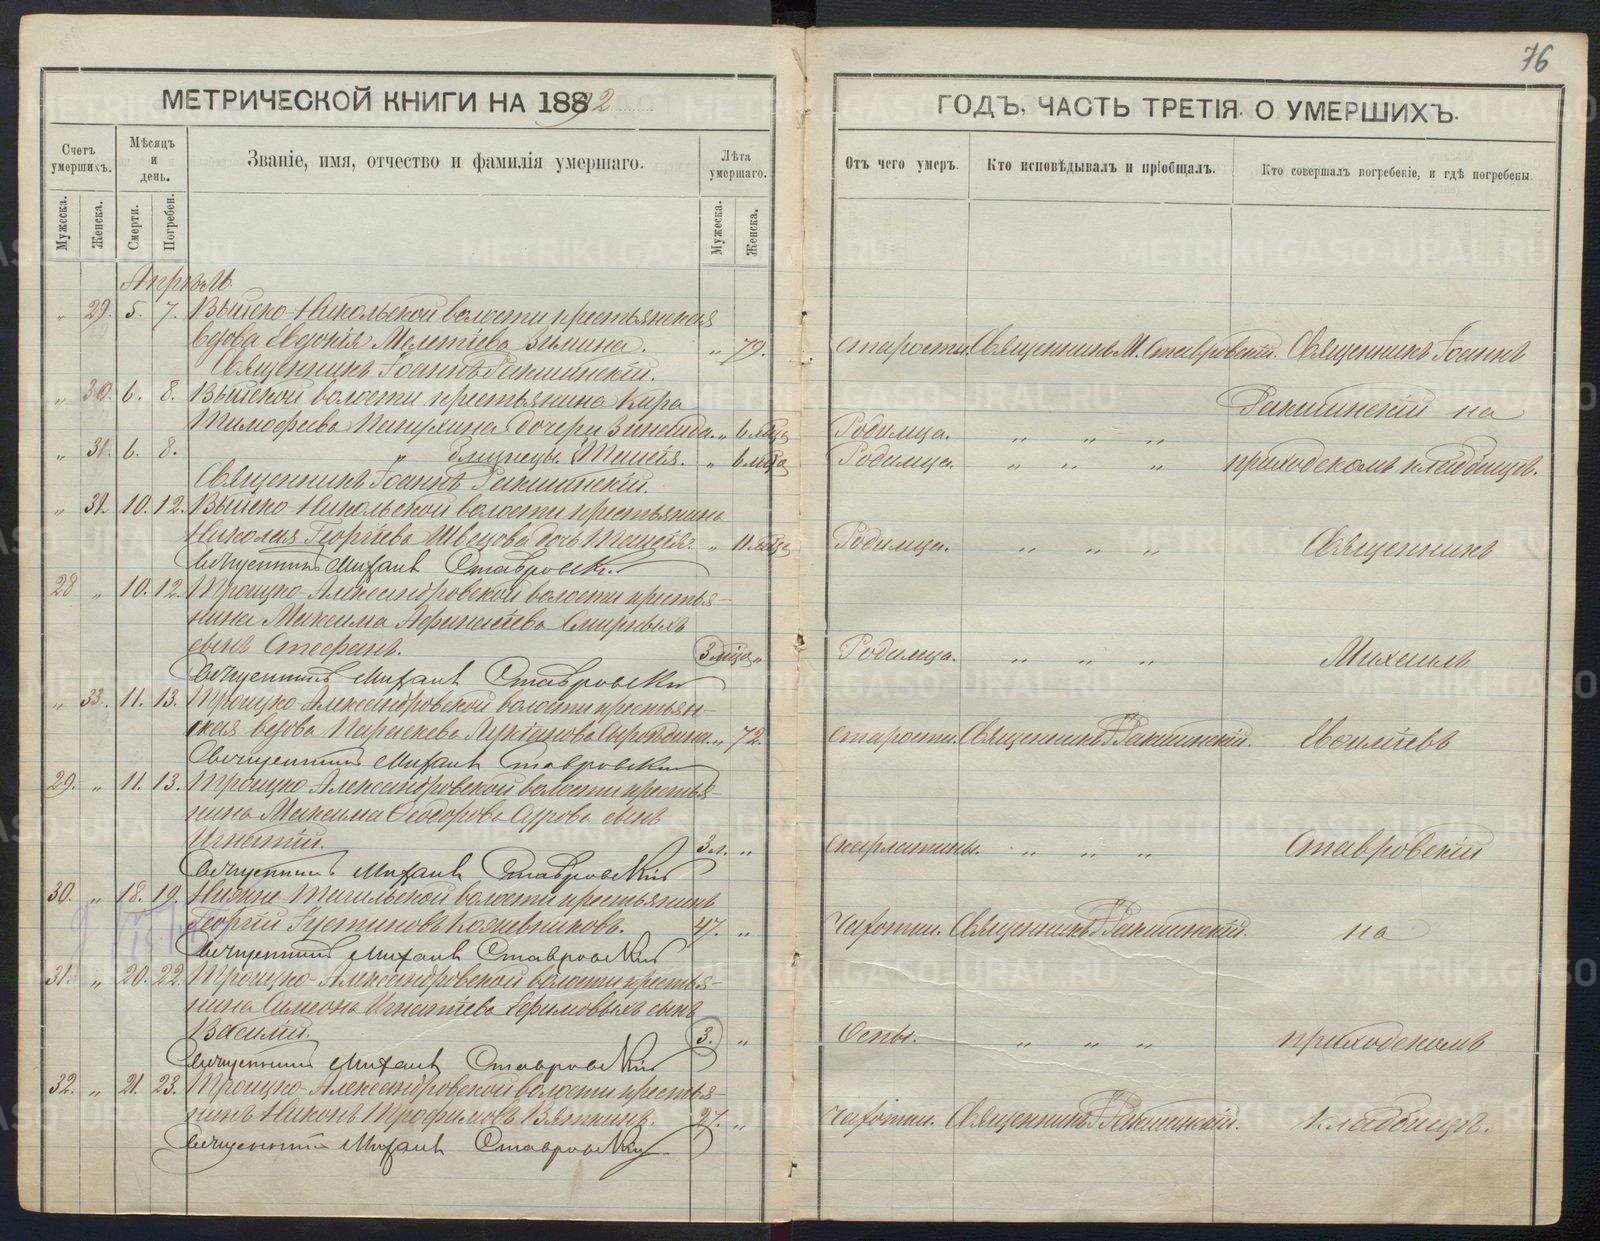 76
МЕТРИЧЕСКОЙ КНИГИ НА 1892
ГОДЪ, ЧАСТЬ ТРЕТІЯ. О УМЕРШИХЪ.
Счетъ умершихъ.
Мѣсяцъ и день.
Званіе, имя, отчество и фамилія умершаго.
Лѣта умершаго.
Отъ чего умеръ.
Кто исповѣдывалъ и пріобщалъ.
Кто совершалъ погребеніе, и гдѣ погребены.
Мужеска.
Женска.
Смерти.
Погребен.
Мужеска.
Женска.
Апрѣль.
„ 29. 5. 7. Выйско-Никольской волости крестьянская
вдова Евдокія Мелетіева Зимина. „ 79. старости. Священникъ М. Ставровскій. Священникъ Іоаннъ
Священникъ Іоаннъ Ракшинскій.
„ 30. 6. 8. Выйской волости крестьянина Кира Ракшинскій на
Тимофеева дочери Зинаида. „ 6 мѣц. Родимца. „ „ „
„ 31. 6. 8. „ близнецы. Таисія. „ 6 мѣц. Родимца. „ „ „ приходскомъ кладбищѣ.
Священникъ Іоаннъ Ракшинскій.
„ 32. 10. 12. Выйско-Никольской волости крестьянина
Николая Георгіева Швецова дочь Таисія. „ 11 мѣц. Родимца. „ „ „ Священникъ
Священникъ Михаилъ Ставровскій
28 „ 10. 12. Троицко-Александровской волости крестья-
нина Максима Смирныхъ
сынъ Стефанъ. 3 мѣц. „ Родимца. „ „ „ Михаилъ
Священникъ Михаилъ Ставровскій
„ 33. 11. 13. Троицко-Александровской волости крестьян-
ская вдова Параскева Лукіанова „ 72. старости. Священникъ І. Ракшинскій. Евсиліевъ
Священникъ Михаилъ Ставровскій
29. „ 11. 13. Троицко-Александровской волости крестья-
нина Максима Ѳеодорова сынъ
Игнатій. 3 л. „ скарлатины. „ „ „ Ставровскій
Священникъ Михаилъ Ставровскій
30. „ 18. 19. Нижне-Тагильской волости крестьянинъ
Георгій Іустиновъ Кожевниковъ. 47. „ чахотки. Священникъ І. Ракшинскій. на
Священникъ Михаилъ Ставровскій
31. „ 20. 22. Троицко-Александровской волости крестья-
нина Симеона Игнатіева Ефимовыхъ сынъ
Василій. 3. „ Оспы. „ „ „ приходскомъ
Священникъ Михаилъ Ставровскій
32. „ 21. 23. Троицко-Александровской волости крестья-
нинъ Никонъ Трофимовъ Вяткинъ. 27. „ чахотки. Священникъ І. Ракшинскій. кладбищѣ.
Священникъ Михаилъ Ставровскій.
METRIKI.GASO-URAL.RU